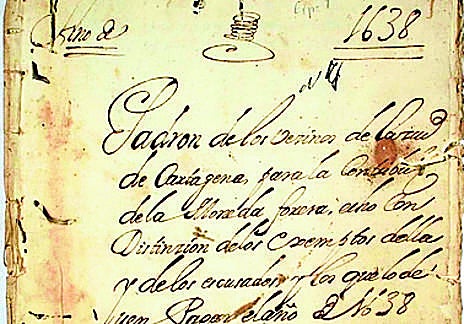 Año de 1638
Padron de los Vezinos de la ciud
de Cartagena, para la Contribuz
de la Moneda forera, con
Distinzion de los exemptos della
y de los escusados y los que lo de
uen Pagar el año d 1638